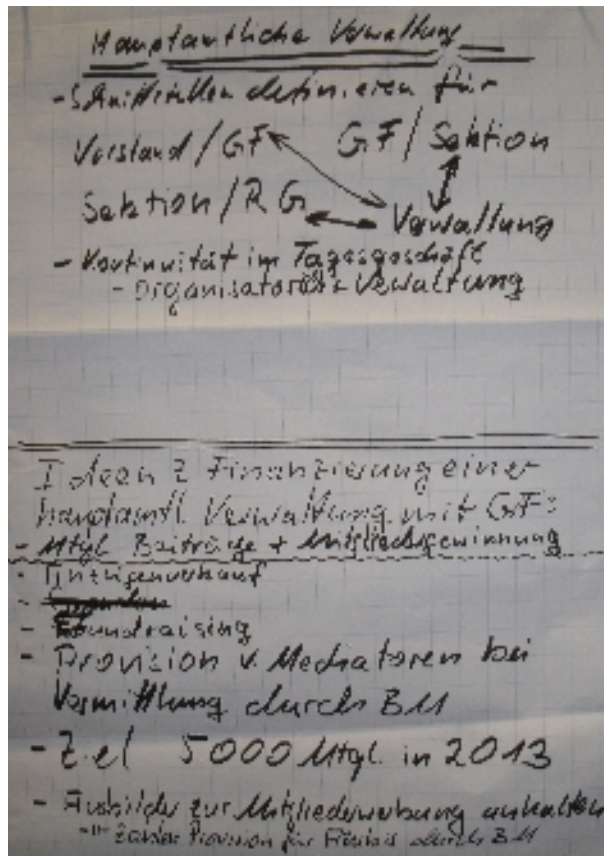 Hauptamtliche Verwaltung
- Schnittstellen definieren für
Vorstand/GF GF/Sektion
Sektion/RG Verwaltung
- Kontinuität im Tagesgeschäft
- Organisatorische Verwaltung
Ideen z Finanzierung einer
hauptamtl. Verwaltung mit GF:
- Mtgl. Beiträge + Mitgliedsgewinnung
- Anzeigenverkauf
- Fundraising
- Provision v. Mediatoren bei
Vermittlung durch BM
- Ziel 5000 Mtgl. in 2013
- Ausbilder zur Mitgliederwerbung anhalten
- " - Provision für durch BM